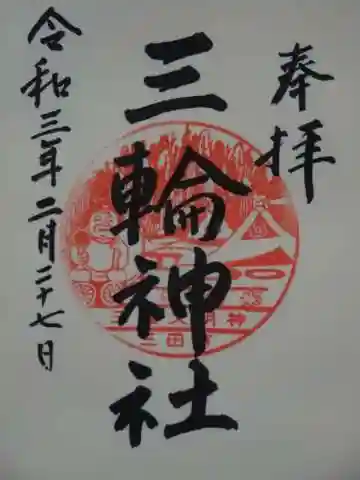 奉拝
三輪神社
令和三年二月二十七日